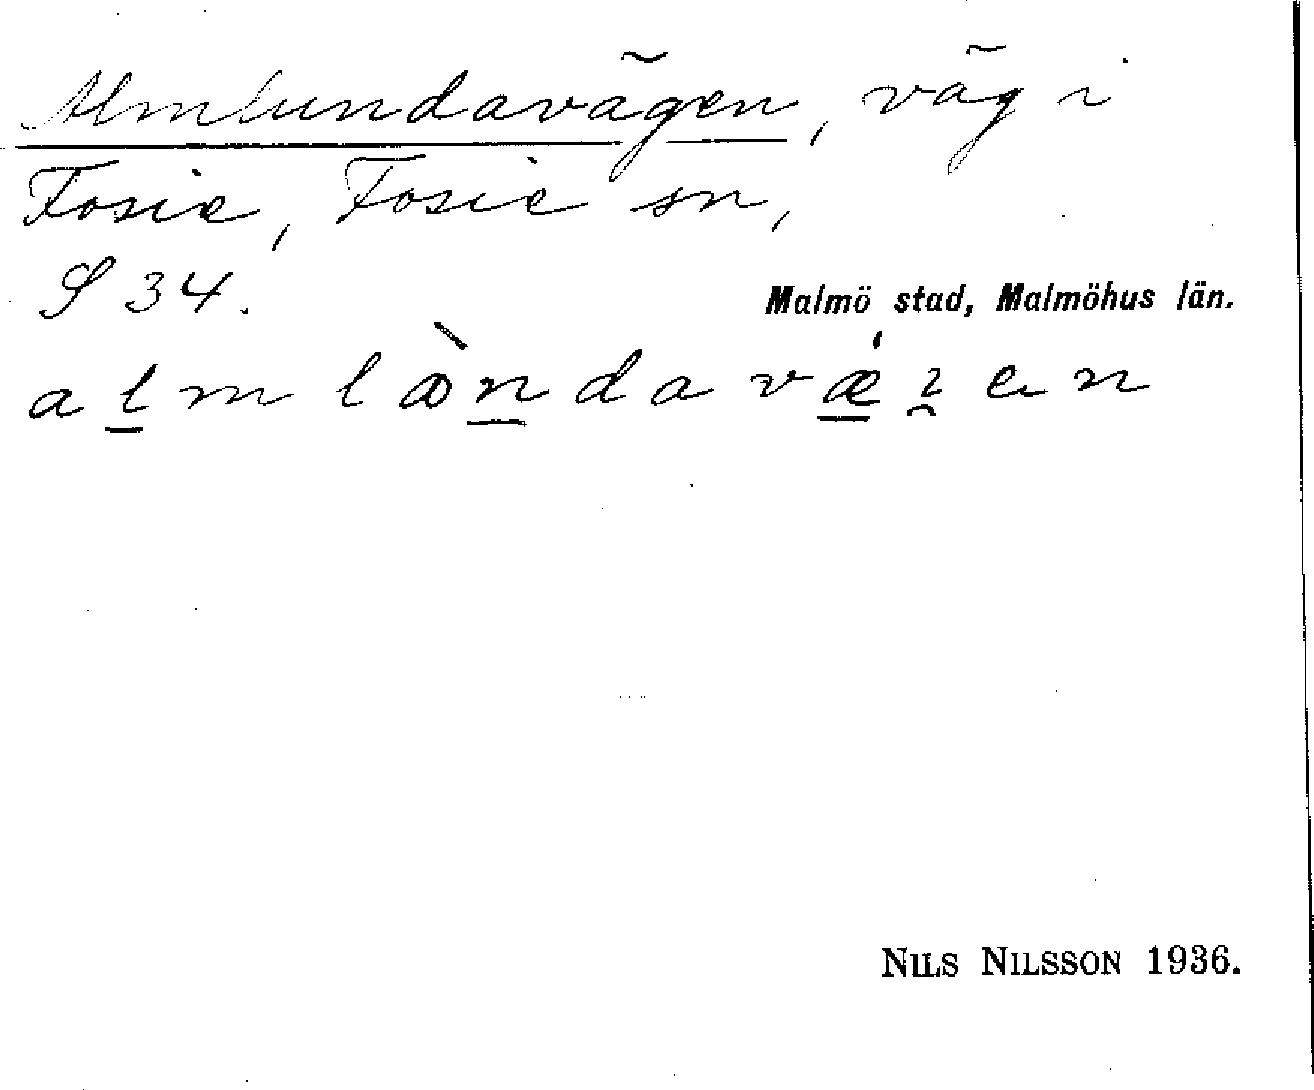 Almlundavägen, väg i
Fosie, Fosie sn,
S 34.
Malmö stad, Malmöhus län.
NILS NILSSON 1936.